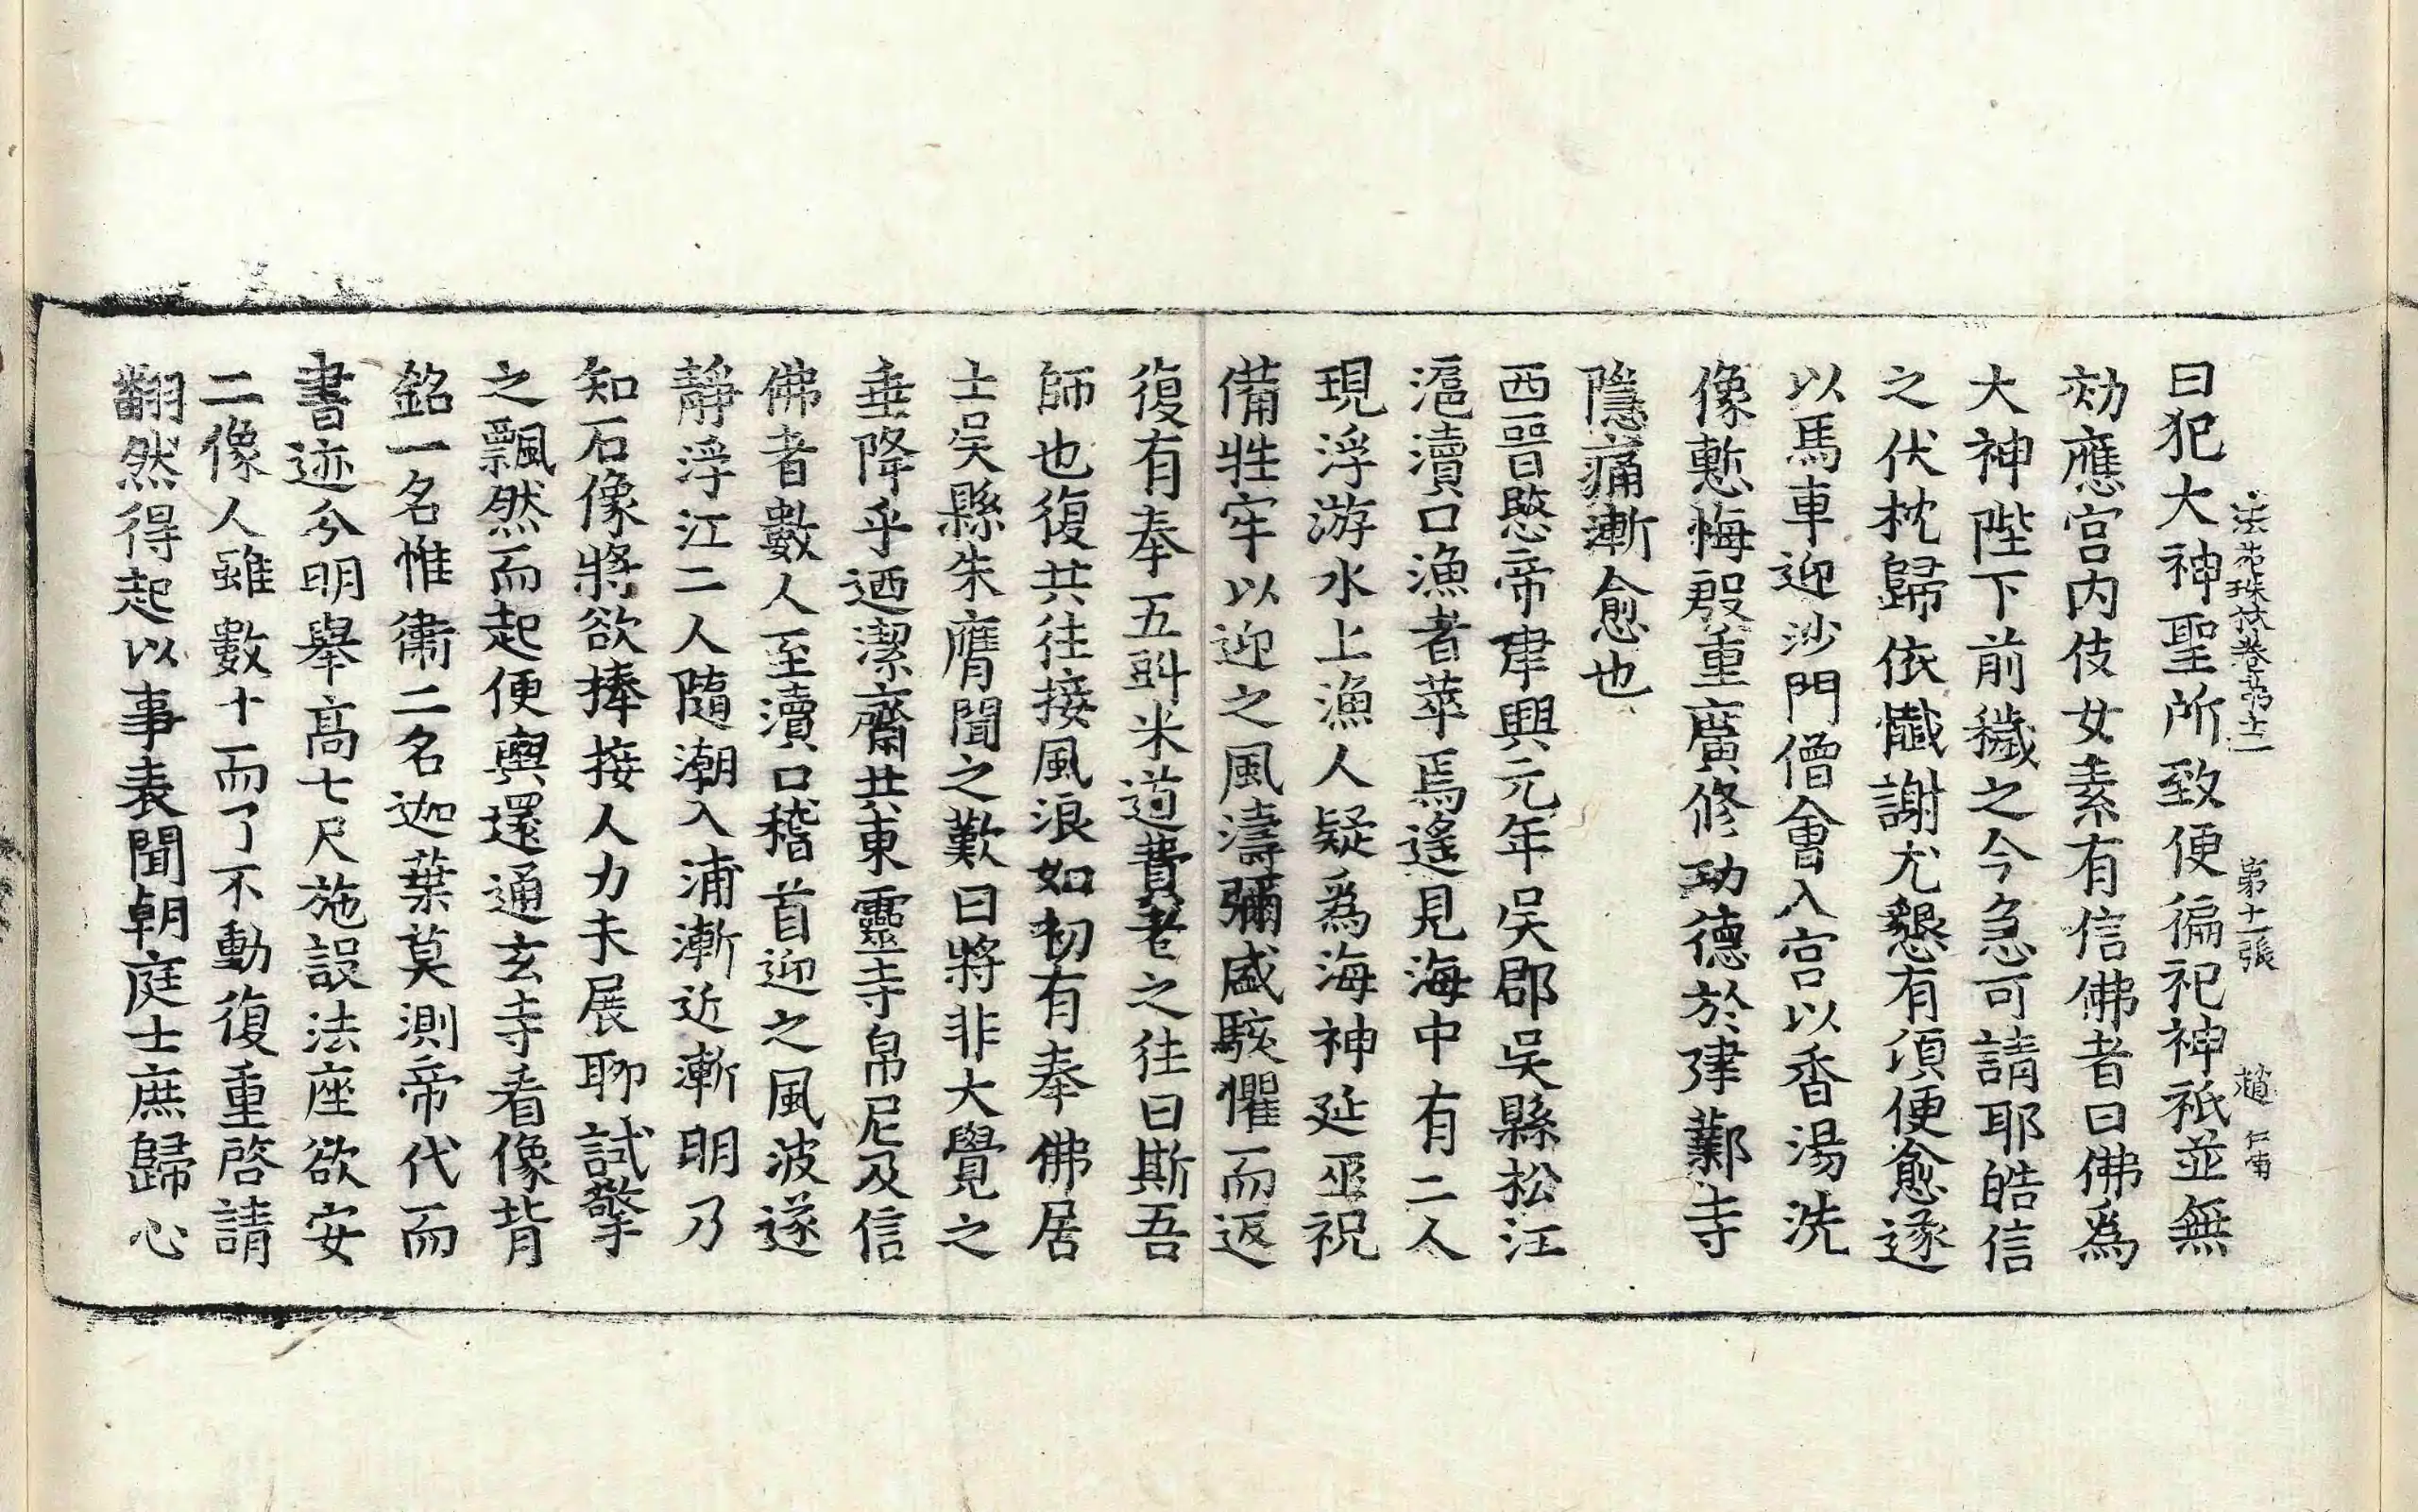 法苑珠林卷第十三 第十二張 趙 仁甫
曰犯大神聖所致便徧祀神祇並無
効應宮内伎女素有信佛者曰佛爲
大神陛下前穢之今急可請耶皓信
之伏枕歸依懺謝尤懇有頃便愈遂
以馬車迎沙門僧會入宮以香湯洗
像慙悔殷重廣修功德於建鄴寺
隱痛漸愈也
西晉愍帝建興元年吳郡吳縣松江
滬瀆口漁者萃焉遙見海中有二人
現浮游水上漁人疑爲海神延巫祝
備牲牢以迎之風濤彌盛駭懼而返
復有奉五㪷米道黄老之徒曰斯吾
師也復共往接風浪如初有奉佛居
士吳縣朱膺聞之歎曰將非大覺之
垂降乎迺潔齋共東靈寺帛尼及信
佛者數人至瀆口稽首迎之風波遂
靜浮江二人隨潮入浦漸近漸明乃
知石像將欲捧接人力未展聊試擎
之飄然而起便輿還通玄寺看像背
銘一名惟衛二名迦葉莫測帝代而
書迹分明舉高七尺施設法座欲安
二像人雖數十而了不動復重啓請
翻然得起以事表聞朝庭士庶歸心